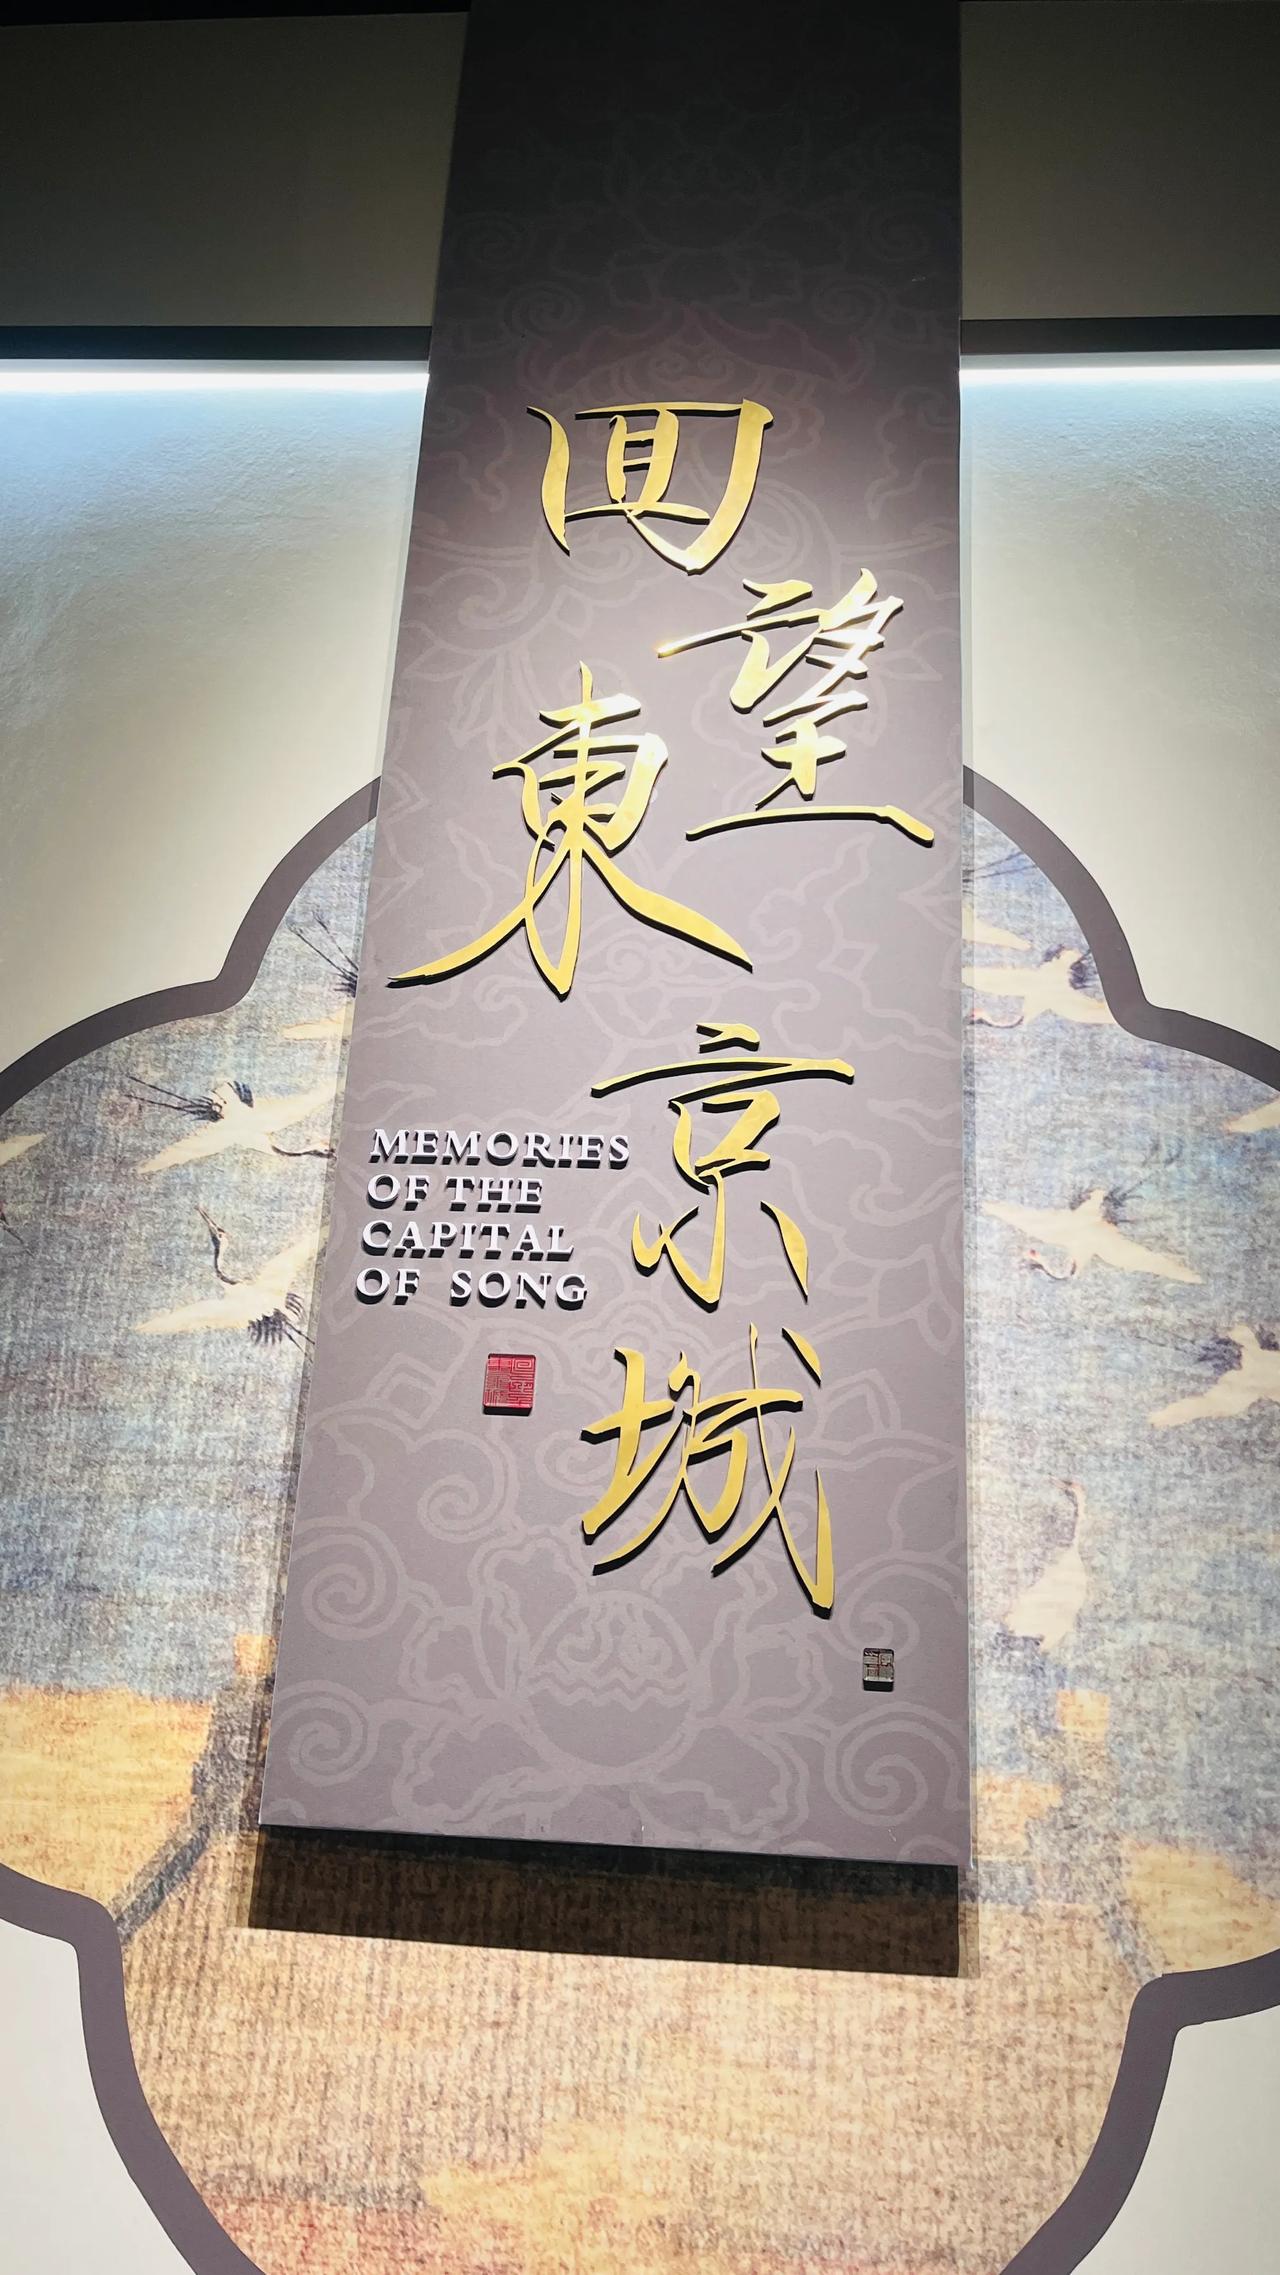 回望東京城
MEMORIES
OF THE
CAPITAL
OF SONG